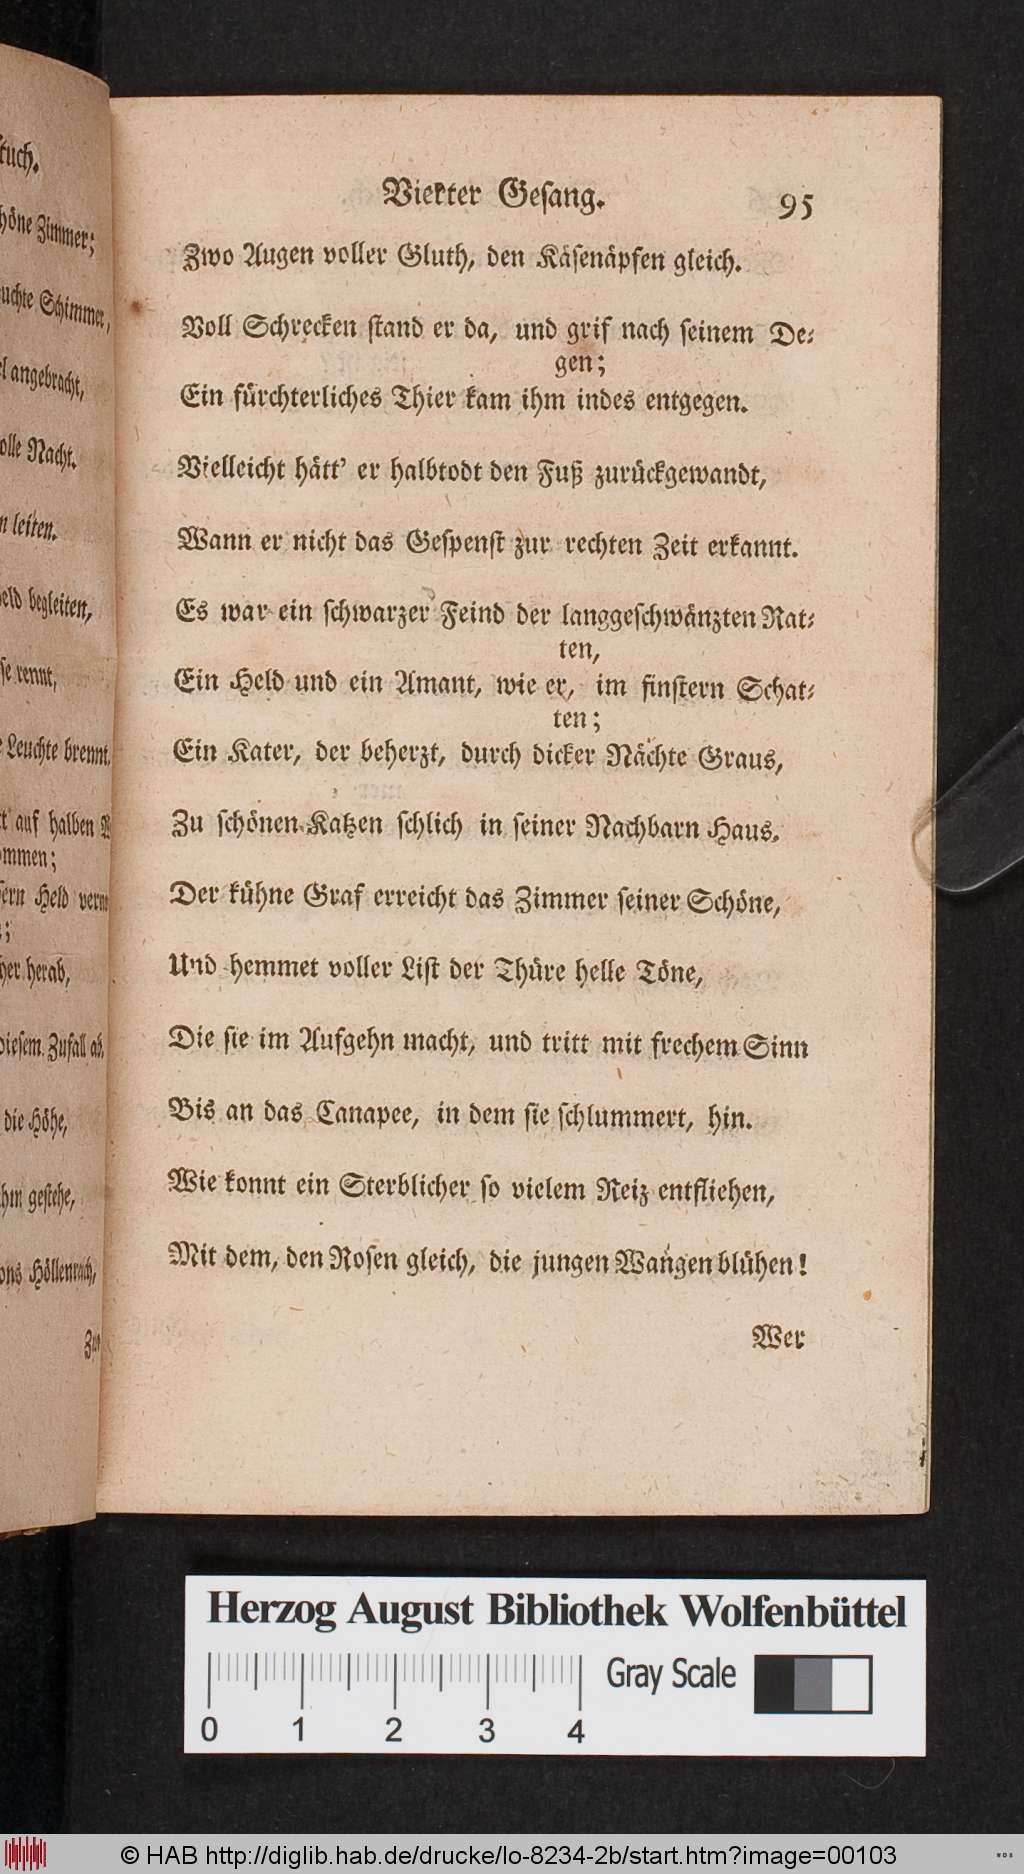 ſtuch.
höne Zimmer;
uchte Schimmer,
el angebracht,
olle Nacht.
n leiten.
eld begleiten,
ſe rennt,
e Leuchte brennt.
t auf halben
ommen;
ſern Held
;
her herab,
dieſem Zufall ab.
die Höhe,
hin geſtehe,
ons Höllenreich,
Zwo
Viekter Geſang.
95
Zwo Augen voller Gluth, den Käſenäpfen gleich.
Voll Schrecken ſtand er da, und grif nach ſeinem De-
gen;
Ein fürchterliches Thier kam ihm indes entgegen.
Vielleicht hätt' er halbtodt den Fuß zurückgewandt,
Wann er nicht das Geſpenſt zur rechten Zeit erkannt.
Es war ein ſchwarzer Feind der langgeſchwänzten Rat-
ten,
Ein Held und ein Amant, wie er, im finſtern Schat-
ten;
Ein Kater, der beherzt, durch dicker Nächte Graus,
Zu ſchönen Katzen ſchlich in ſeiner Nachbarn Haus.
Der kühne Graf erreicht das Zimmer ſeiner Schöne,
Und hemmet voller Liſt der Thüre helle Töne,
Die ſie im Aufgehn macht, und tritt mit frechem Sinn
Bis an das Canapee, in dem ſie ſchlummert, hin.
Wie konnt ein Sterblicher ſo vielem Reiz entfliehen,
Mit dem, den Roſen gleich, die jungen Wangen blühen!
Wer
Herzog August Bibliothek Wolfenbüttel
Gray Scale
0 1 2 3 4
© HAB http://diglib.hab.de/drucke/lo-8234-2b/start.htm?image=00103